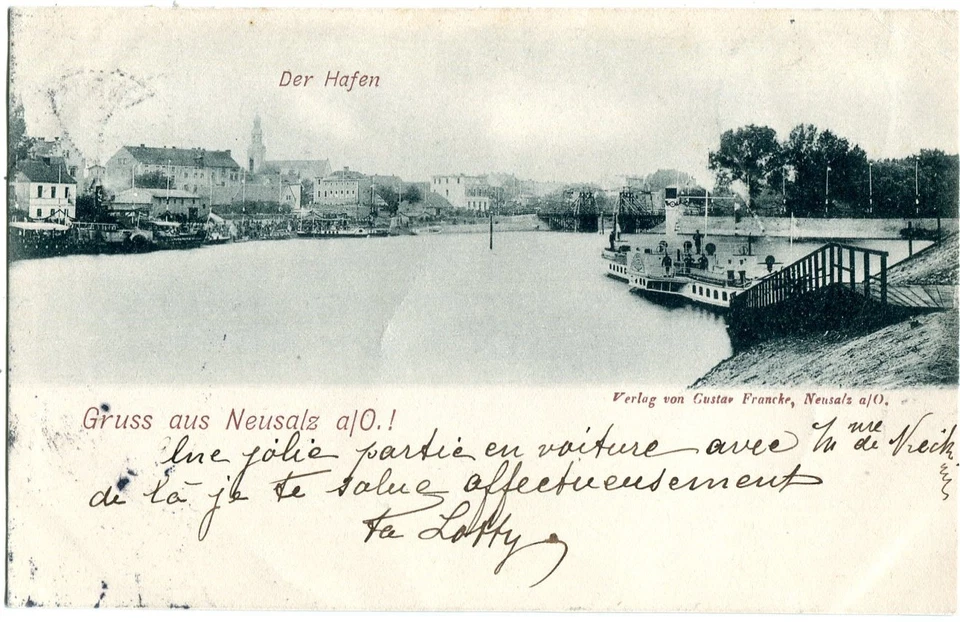 Der Hafen
Verlag von Gustav Francke, Neusalz a/O.
Gruss aus Neusalz a/O.!
Une jolie partie en voiture avec Mme de
de là je te salue affectueusement
ta Lotty